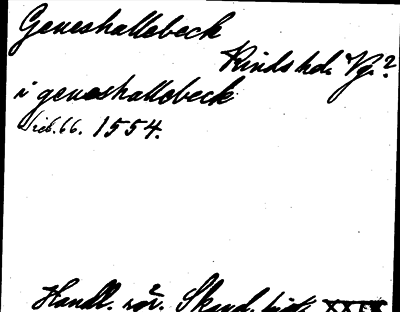 Geneshallebeck
Kinds hd. Vg.?
i geneshallebeck
1554.
Handl. rör. Skand. hist. XXIX